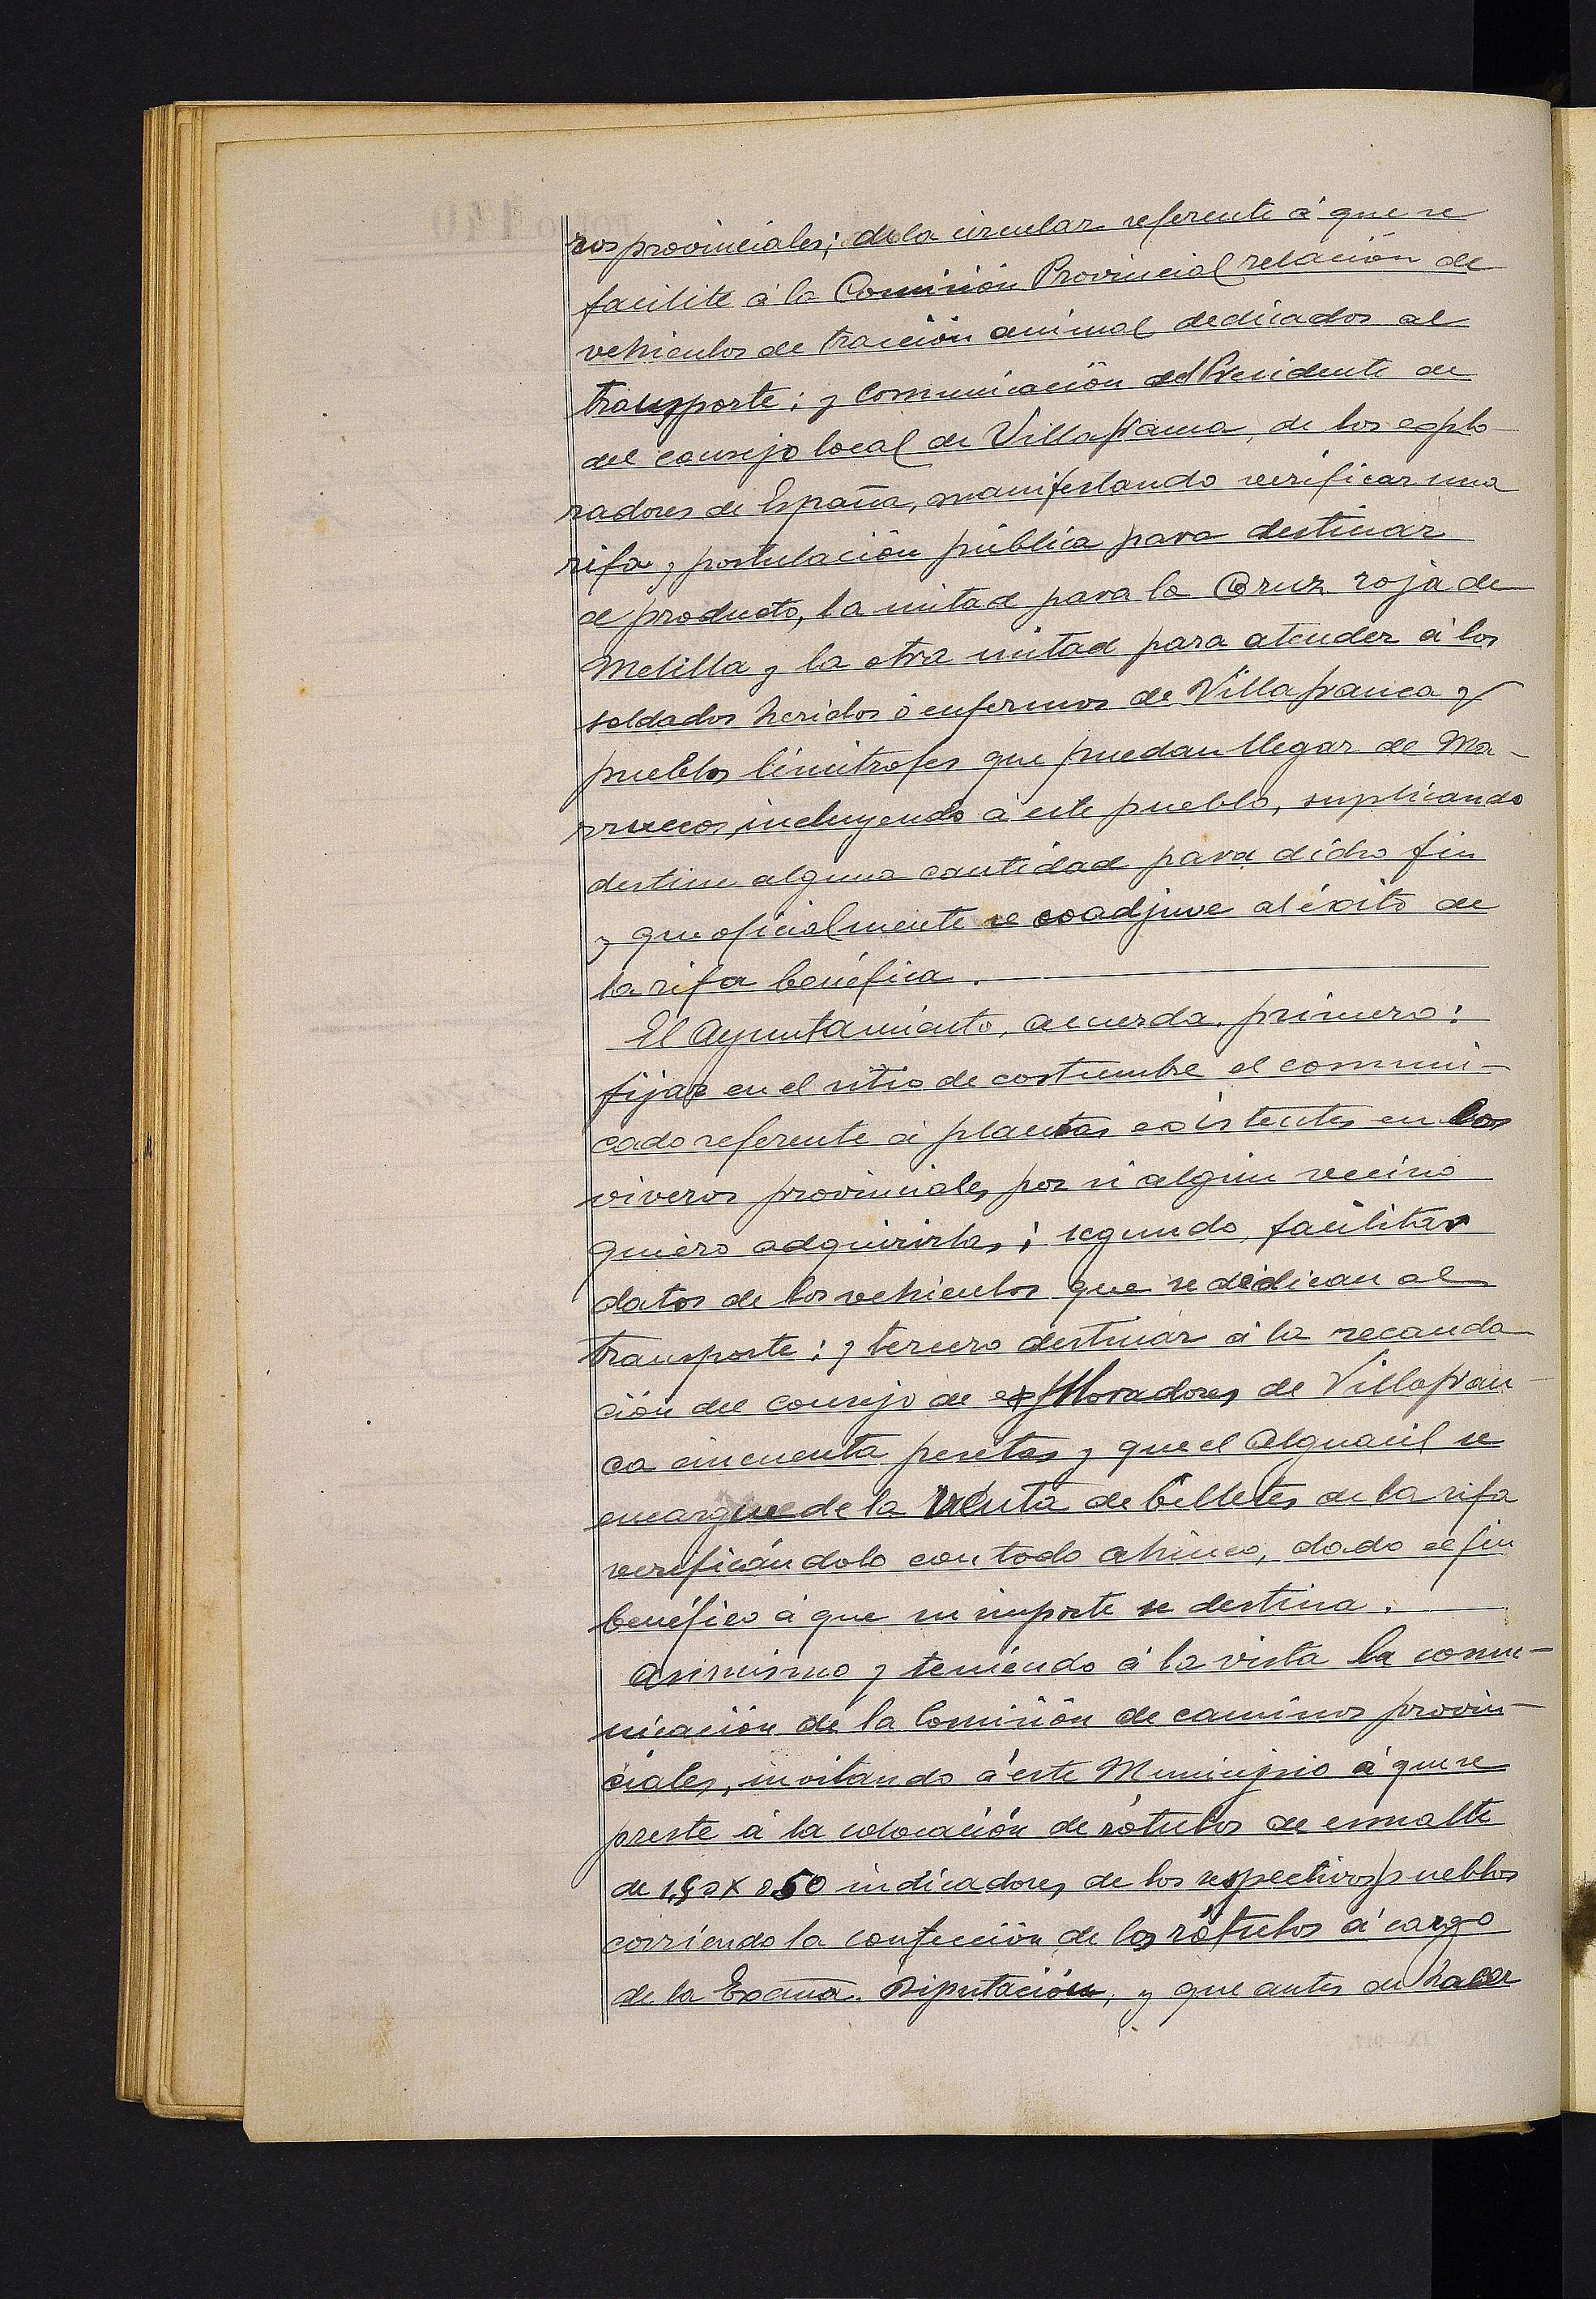 ros provinciales; de la circular referente á que se
facilite á la Comisión Provincial relación de
vehiculos de tracción animal dedicados al
transporte; y comunicación del Presidente de
del consejo local de Villafranca, de los explo-
radores de España, manifestando verificar una
rifa y postulación pública para destinar
el producto, la mitad para la Cruz roja de
Melilla y la otra mitad para atender á los
soldados heridos ó enfermos de Villafranca y
pueblos limitrofes que puedan llegar de Ma-
rruecos, incluyendo á este pueblo, suplicando
destine alguna cantidad para dicho fin
y que oficialmente se coadjuve al éxito de
la rifa benéfica.
El Ayuntamiento, acuerda, primero:
fijar en el sitio de costumbre el comuni-
cado referente á plantas existentes en los
viveros provinciales, por si algún vecino
quiero adquirirlas; segundo, facilitar
datos de los vehiculos que se dedican al
transporte; y tercero destinar á la recauda-
ción del consejo de exploradores de Villafran-
ca cincuenta pesetas y que el Alguacil se
encargue de la venta de billetes de la rifa
verificándolo con todo ahinco, dado el fin
benéfico á que su importe se destina.
Asimismo y teniendo á la vista la comu-
nicación de la Comisión de caminos provin-
ciales, invitando á este Municipio á que se
preste á la colocación de rótulos de esmalte
de 1,50 x 0 50 indicadores de los respectivos pueblos
corriendo la confección de los rótulos á cargo
de la Excma. Diputación, y que antes de haber